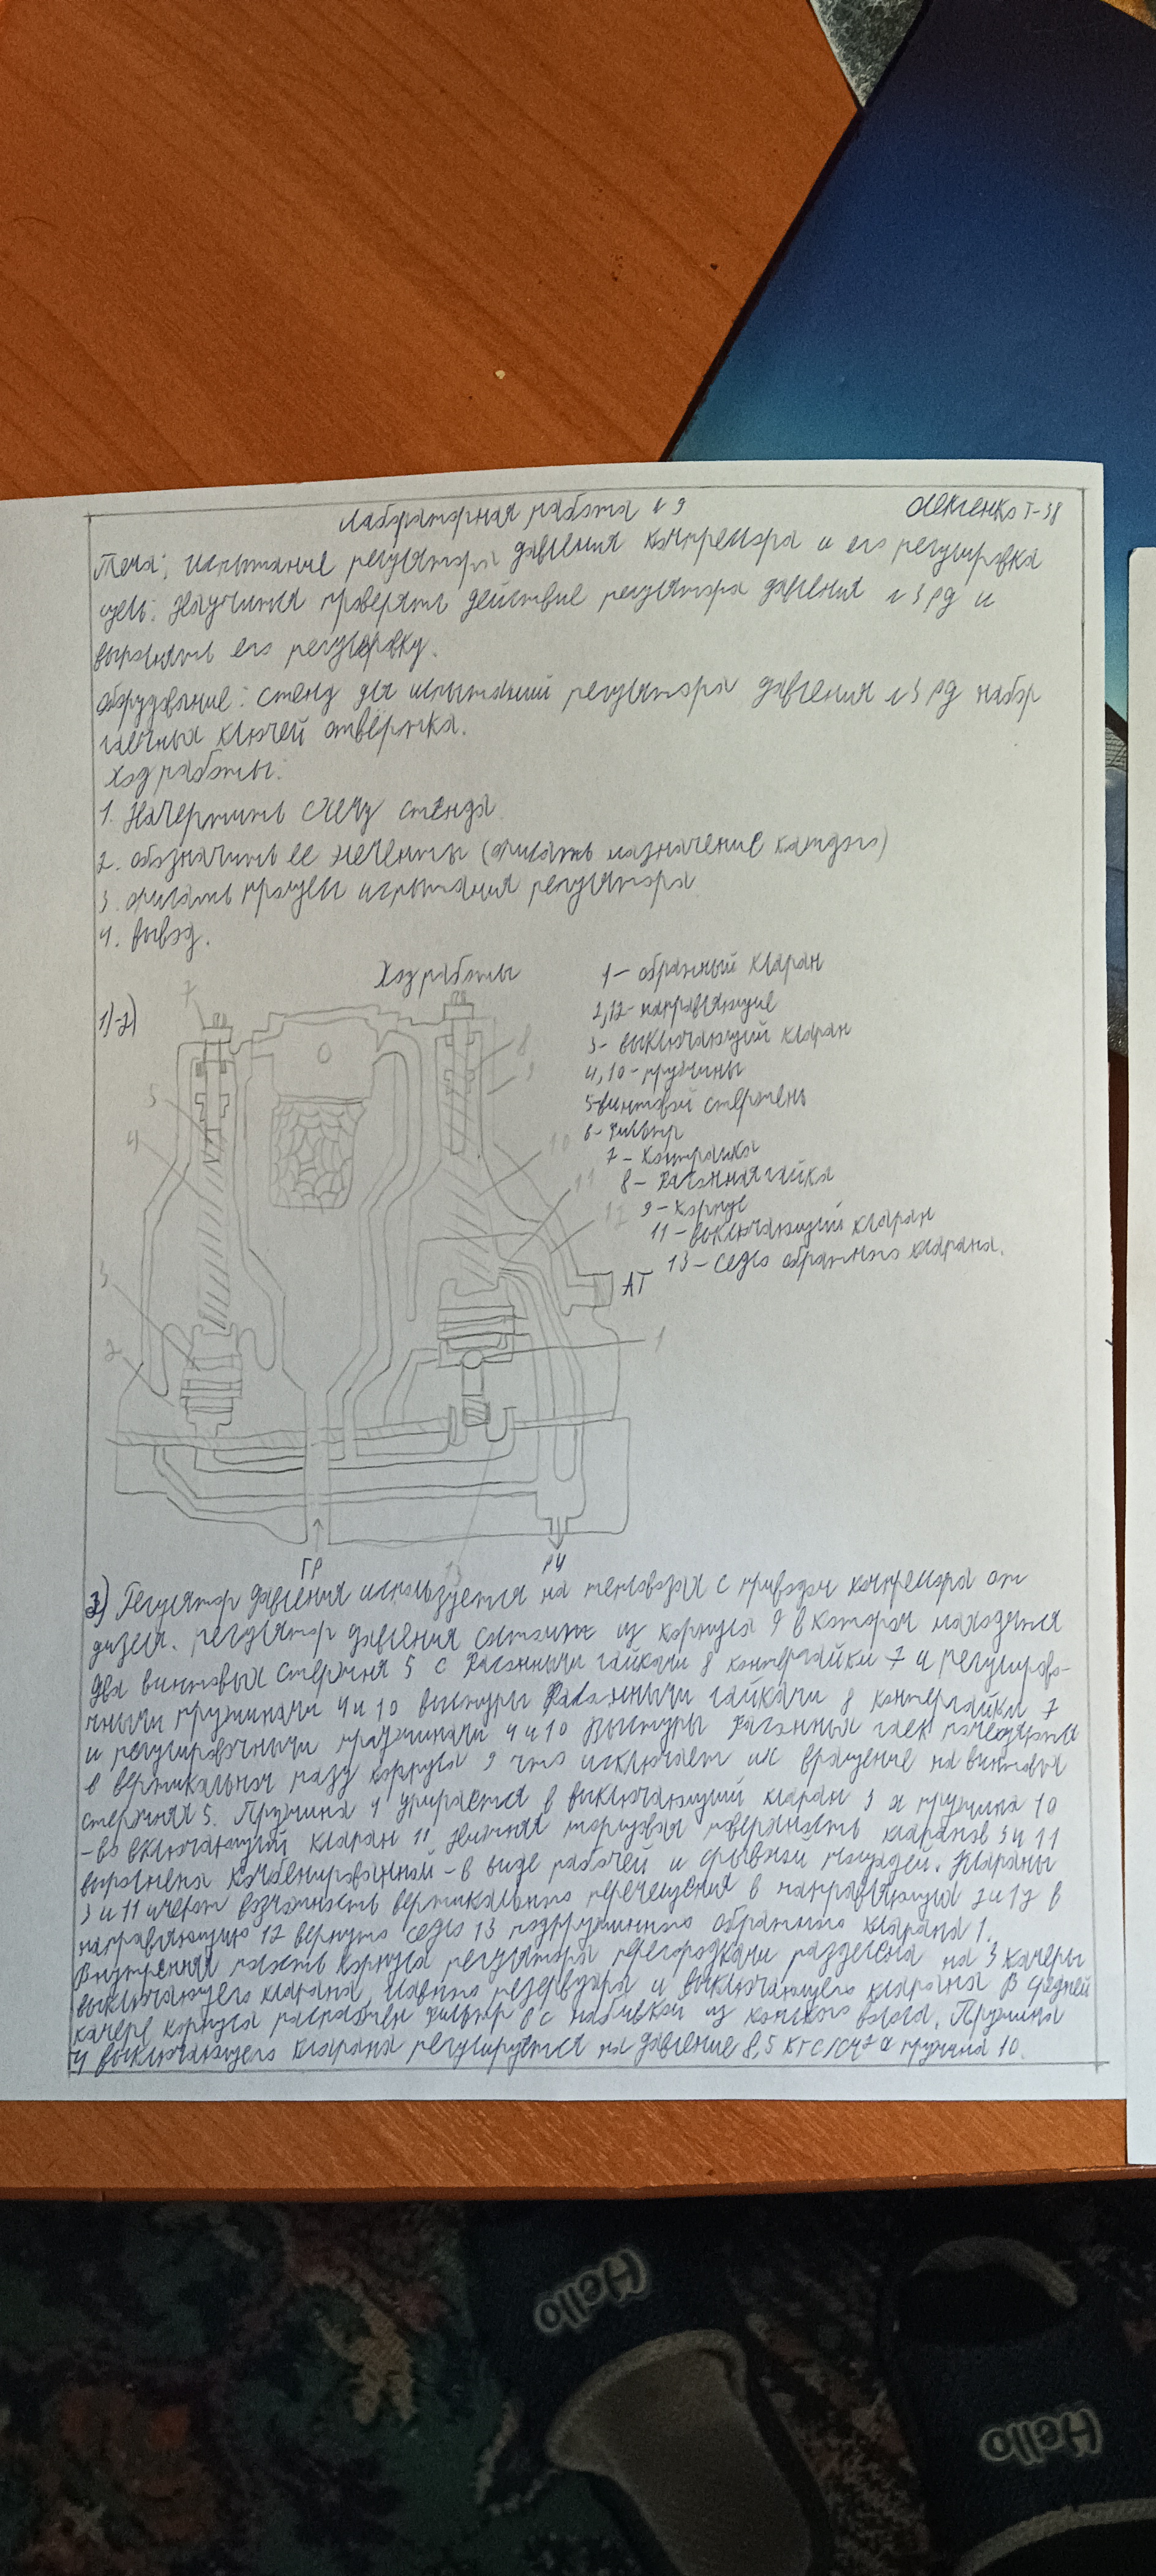 Лабораторная работа №9
Алексенко Т-38
Тема: испытание регулятора давления компрессора и его регулировка
Цель: Научится проверять действие регулятора давления №3 РД и
выполнять его регулировку.
Оборудование: стенд для испытаний регулятора давления №3 РД набор
гаечных ключей отвёртка.
Ход работы:
1. Начертить схему стенда
2. обозначить ее элементы (описать назначение каждого)
3. описать процесс испытания регулятора
4. вывод.
Ход работы
1)-2)
1 - обратный клапан
2,12 - направляющие
3 - выключающий клапан
4,10 - пружины
5 - винтовой стержень
6 - фильтр
7 -
8 - Фасонная гайка
9 - корпус
11 - выключающий клапан
13 - седло обратного клапана.
7
8
9
5
4
10
11
12
3
2
АТ
1
ГР
13
РУ
3) Регулятор давления используется на тепловозах с приводом компрессора от
дизеля. регулятор давления состоит из корпуса 9 в котором находятся
два винтовых стержня 5 с фасонными гайками 8 контргайки 7 и регулирово-
чными пружинами 4 и 10 выступы фасонными гайками 8 контргайки 7
и регулировочными пружинами 4 и 10 Выступы фасонных гаек
в вертикальном пазу корпуса 9 что исключает их вращение на винтовых
стержнях 5. Пружина 4 упирается в выключающий клапан 3 а пружина 10
- во включающий клапан 11. Нижняя торцовая поверхность клапанов 3 и 11
выполнена комбинированной - в виде рабочей и срывной площадей. Клапаны
3 и 11 имеют возможность вертикального перемещения в направляющих 2 и 12 в
направляющую 12 вернуто седло 13 подпружиненного обратного клапана 1.
Внутренняя часть корпуса регулятора перегородками разделена на 3 камеры
выключающего клапана, главного резервуара и выключающего клапана В средней
камере корпуса расположен фильтр 6 с набивкой из конского волоса. Пружина
4 выключающего клапана регулируется на давление 8,5 кгс/см² а пружина 10.
Hello
Hello